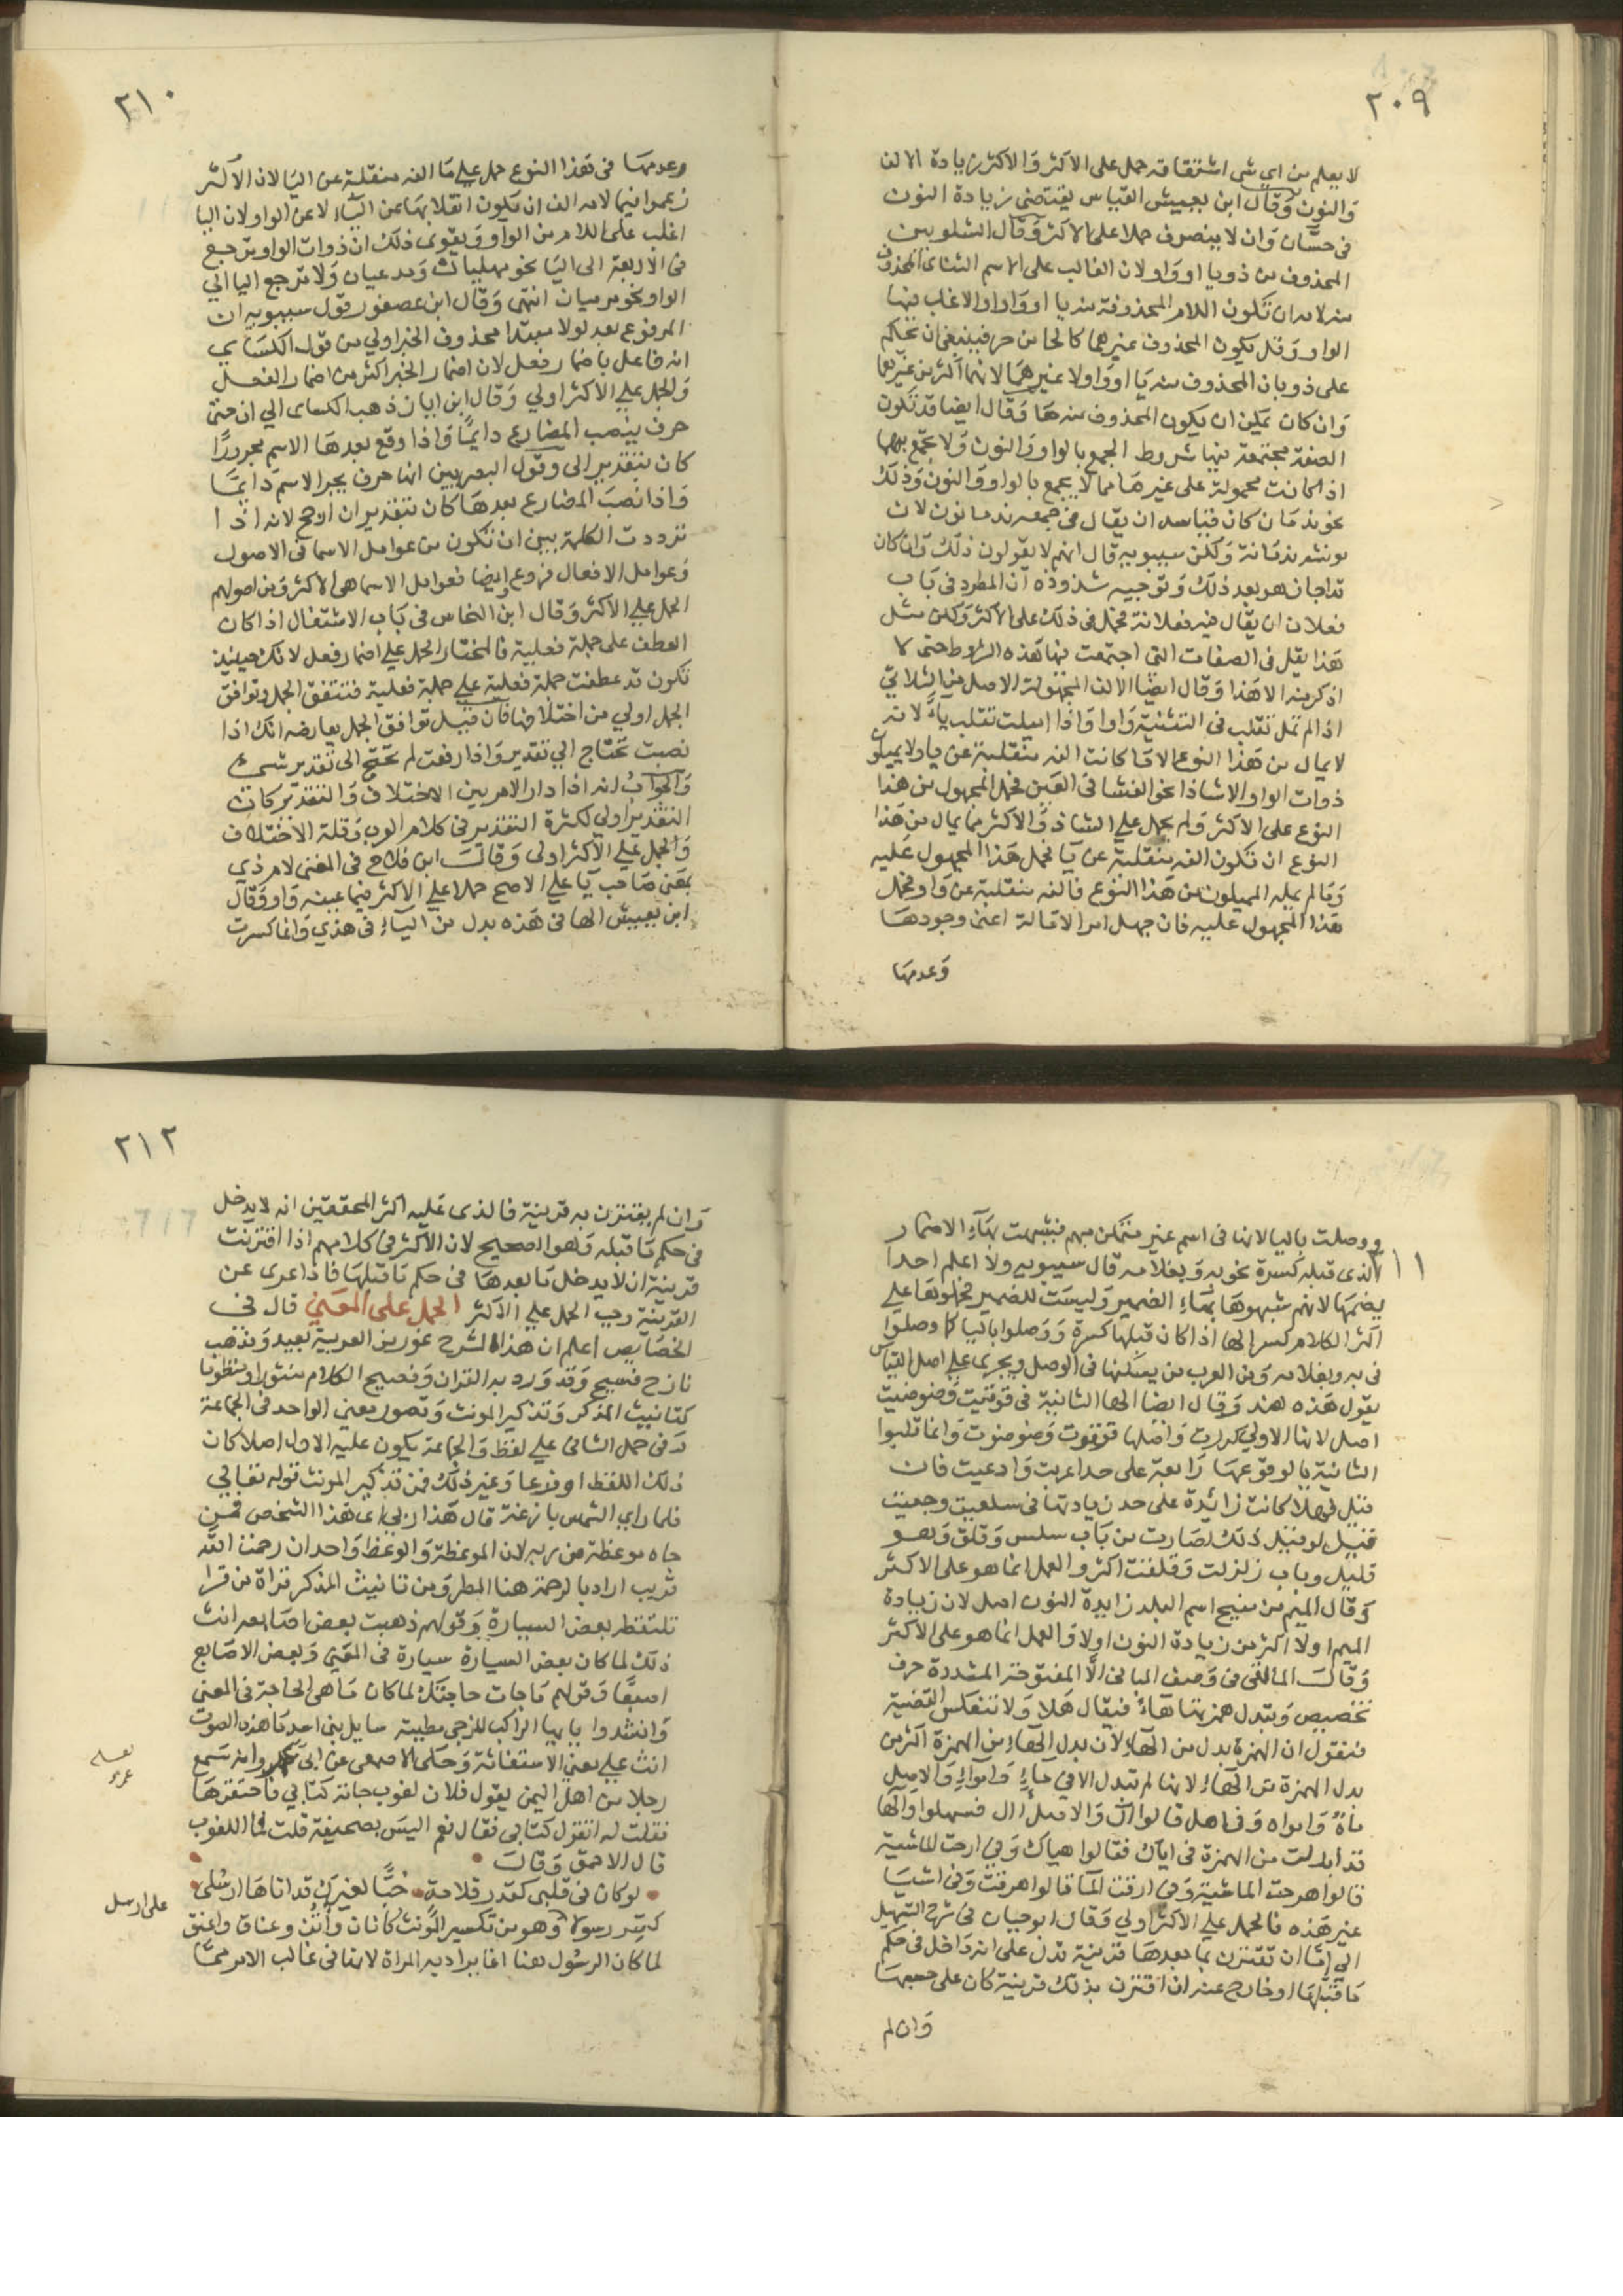 ٢٠٩
لا يعلم من اي شي اشتقاقه حمل على الاكثر والاكثر زيادة الالف
والنون وقال ابن يعيش القياس يقتضى زيادة النون
فى حسان وان لا ينصرف حملا على الاكثر وقال الشلوبين
المحذوف من ذو يا او واو لان الغالب على الاسم الثنائ المحذوف
منه لامه ان تكون اللام المحذوفة منه يا او واوا والاغلب فيها
الواو وقل يكون المحذوف غيرهما كالحا من حر فينبغى ان نحكم
على ذو بان المحذوف منه يا او واو لا غيرهما لانهما اكثر من غيرهما
وان كان يمكن ان يكون المحذوف منه ها وقال ايضا قد تكون
الصفة مجتمعة فيها شروط الجمع بالواو والنون ولا تجمع بهما
اذا كانت محمولة على غيرها مما لا يجمع بالواو والنون وذلك
نحو ندمان كان قياسه ان يقال فى جمعه ندمانون لان
مونثه ندمانة ولكن سيبويه قال انهم لا يقولون ذلك وان كان
قد اجازه هو بعد ذلك وتوجيه شذوذه ان المطرد فى باب
فعلان ان يقال فيه فعلانة فحمل فى ذلك على الاكثر ولكن مثل
هذا يقل فى الصفات التى اجتمعت فيها هذه الشروط حتى لا
اذكر منه الا هذا وقال ايضا الالف المجهولة الاصل من الثلاثي
اذا لم تمل تقلب فى التثنية واوا واذا اميلت تقلب ياء لانه
لا يمال من هذا النوع الا ما كانت الفه منقلبة عن يا ولا يميلون
ذوات الواو الا شاذا نحو العشا فى العين فحمل المجهول من هذا
النوع على الاكثر ولم يحمل على الشاذ والاكثر فيما يمال من هذا
النوع ان تكون الفه منقلبة عن يا فحمل هذا المجهول عليه
وما لم يمله المميلون من هذا النوع فالفه منقلبة عن واو فحمل
هذا المجهول عليه فان جهل امر الامالة اعنى وجودها
وعدمها
٢١٠
وعدمها فى هذا النوع حمل على ما الفه منقلبة عن اليا لان الاكثر
زعموا فيما لامه الف ان يكون انقلابها عن الياء لا عن الواو لان اليا
اغلب على اللام من الواو ويقوى ذلك ان ذوات الواو ترجع
فى الاربعة الى اليا نحو ملهيان ومدعيان ولا ترجع اليا الى
الواو نحو مرميان انتهى وقال ابن عصفور قول سيبويه ان
المرفوع بعد لولا مبتدا محذوف الخبر اولى من قول الكسائي
انه فاعل باضمار فعل لان اضمار الخبر اكثر من اضمار الفعل
والحمل على الاكثر اولى وقال ابن ايان ذهب الكساى الى ان حتى
حرف ينصب المضارع دائما واذا وقع بعدها الاسم مجرورا
كان بتقدير الى وقول البصريين انها حرف يجر الاسم دائما
واذا نصب المضارع بعدها كان بتقدير ان ارجح لانه اذا
ترددت الكلمة بين ان تكون من عوامل الاسما فى الاصول
وعوامل الافعال فروع وايضا فعوامل الاسما هى الاكثر ومن اصولهم
الحمل على الاكثر وقال ابن النحاس فى باب الاشتغال اذا كان
العطف على جملة فعلية فالمختار الحمل على اضمار فعل لانك حينيذ
تكون قد عطفت جملة فعلية على جملة فعلية فتتفق الجمل وتوافق
الجمل اولى من اختلافها فان قيل توافق الجمل يعارضه انك اذا
نصبت تحتاج الى تقدير واذا رفعت لم تحتج الى تقدير شئ
والجواب انه اذا دار الامر بين الاختلاف والتقدير كان
التقدير اولى لكثرة التقدير فى كلام العرب وقلة الاختلاف
والحمل على الاكثر اولى وقال ابن فلاح فى المغنى لام ذي
بمعنى صاحب يا على الاصح حملا على الاكثر فيما عينه واو وقال
ابن يعيش الها فى هذه بدل من الياء فى هذي وانما كسرت
١١
ووصلت باليا لانها فى اسم غير متمكن مبهم فشبهت بهاء الاضمار
الذى قبله كسرة نحو به وبغلامه قال سيبويه ولا اعلم احدا
يضمها لانهم شبهوها بهاء الضمير وليست للضمير فحملوها على
اكثر الكلام كسر الها اذا كان قبلها كسرة ووصلوا باليا كما وصلوا
فى به وبغلامه ومن العرب من يسكنها فى الوصل ويجرى على اصل القياس
يقول هذه هند وقال ايضا الها الثانية فى قوقيت وضوضيت
اصل لانها الاولى كررت واصلها قوقوت وضوضوت وانما قلبوا
الثانية يا لوقوعها رابعة على حد اغربت وادعيت فان
قيل فهلا كانت زائدة على حد زيادتها فى سلقيت وجعبيت
قيل لو قيل ذلك لصارت من باب سلس وقلق وهو
قليل وباب زلزلت وقلقلت اكثر والعمل انما هو على الاكثر
وقال الميم من منبج اسم البلد زايدة النون اصل لان زيادة
الميم اولا اكثر من زيادة النون اولا والعمل انما هو على الاكثر
وقال المالقى فى وصف المبانى الا المفتوحة المشددة حرف
تخصيص وتبدل همزتها هاء فيقال هلا ولا تنعكس القضية
فنقول ان الهمزة بدل من الهاء لان بدل الهاء من الهمزة اكثر من
بدل الهمزة من الهاء لانها لم تبدل الا فى ماء وامواء والاصل
ماه وامواه وفى اهل قالوا ال والاصل اال فسهلوا والها
قد ابدلت من الهمزة فى اياك فقالوا هياك وفى ارحت الماشية
قالوا هرحت الماشية وفى ارقت الما قالوا هرقت وفى اشيا
غير هذه فالحمل على الاكثر اولى وقال ابو حيان فى شرح التسهيل
الى اما ان تقترن بما بعدها قرينة تدل على انه داخل فى حكم
ما قبلها او خارج عنه ان اقترن بذلك قرينة كان على حسبها
وان لم
٢١٢
وان لم يقترن به قرينة فالذى عليه اكثر المحققين انه لا يدخل
فى حكم ما قبله وهو الصحيح لان الاكثر فى كلامهم اذا اقترنت
قرينة ان لا يدخل ما بعدها فى حكم ما قبلها فاذا عرى عن
القرينة وجب الحمل على الاكثر الحمل على المعنى قال فى
الخصايص اعلم ان هذا الشرج غور من العربية بعيد ومذهب
نازح فسيح وقد ورد به القران وفصيح الكلام منثورا ومنظوما
كتانيث المذكر وتذكير المونث وتصور معنى الواحد فى الجماعة
وفى حمل الثانى على لفظ والجماعة يكون عليه الاول اصلا كان
ذلك اللفظ او فرعا وغير ذلك فمن تذكير المونث قوله تعالى
فلما راى الشمس بازغة قال هذا ربى اى هذا الشخص فمن
جاه موعظة من ربه لان الموعظة والوعظ واحد ان رحمت الله
قريب اراد بالرحمة هنا المطر ومن تانيث المذكر قراة من قرا
تلتقطه بعض السيارة وقولهم ذهبت بعض اصابعه انث
ذلك لما كان بعض السيارة سيارة فى المعنى وبعض الاصابع
اصبعا وقولهم ما جات حاجتك لما كان ما هى الحاجة فى المعنى
وانشدوا يا ايها الراكب المزجى مطيته سايل بنى اسد ما هذه الصوت
انث على معنى الاستغاثة وحكى الاصمعى عن ابى عمرو انه سمع
رجلا من اهل اليمن يقول فلان لغوب جاته كتابى فاحتقرها
فقلت له اتقول كتابى فقال نعم اليس بصحيفة قلت فما اللغوب
قال الاحمق وقال
لو كان فى قلبى كقدر قلامة حبا لغيرك قد اتاها ارسلى
كسر رسولا وهو من تكسير المونث كاتان وأتن وعناق واعنق
لما كان الرسول هنا انما يراد به المراة لانها فى غالب الامر مما
على ارسل